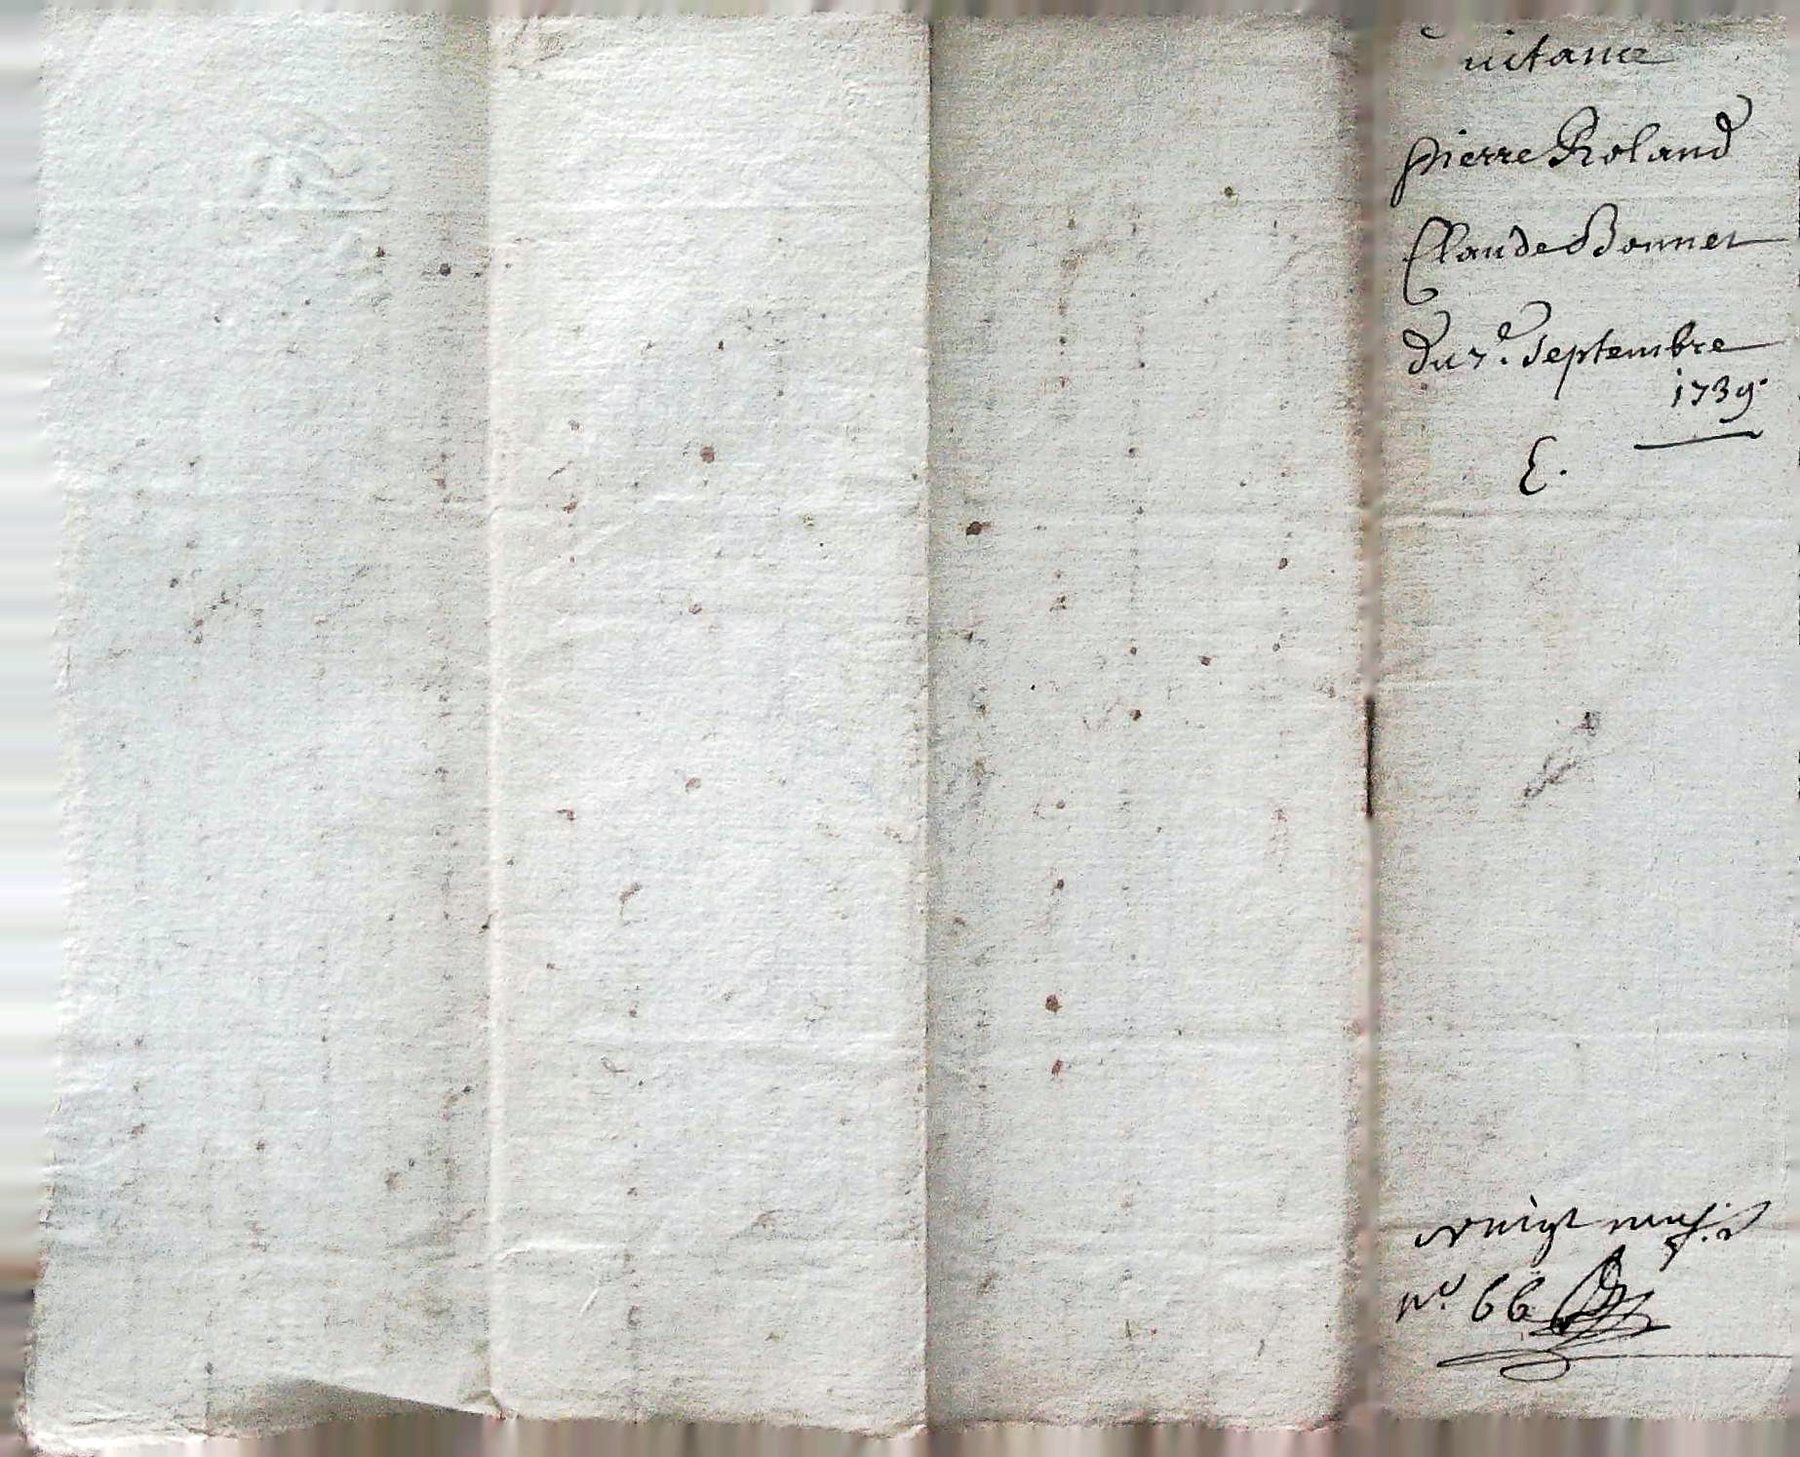 uitance
pierre Roland
Claude Bonnet
du 7e. septembre
1739.
E.
vingt neuf
no. 66